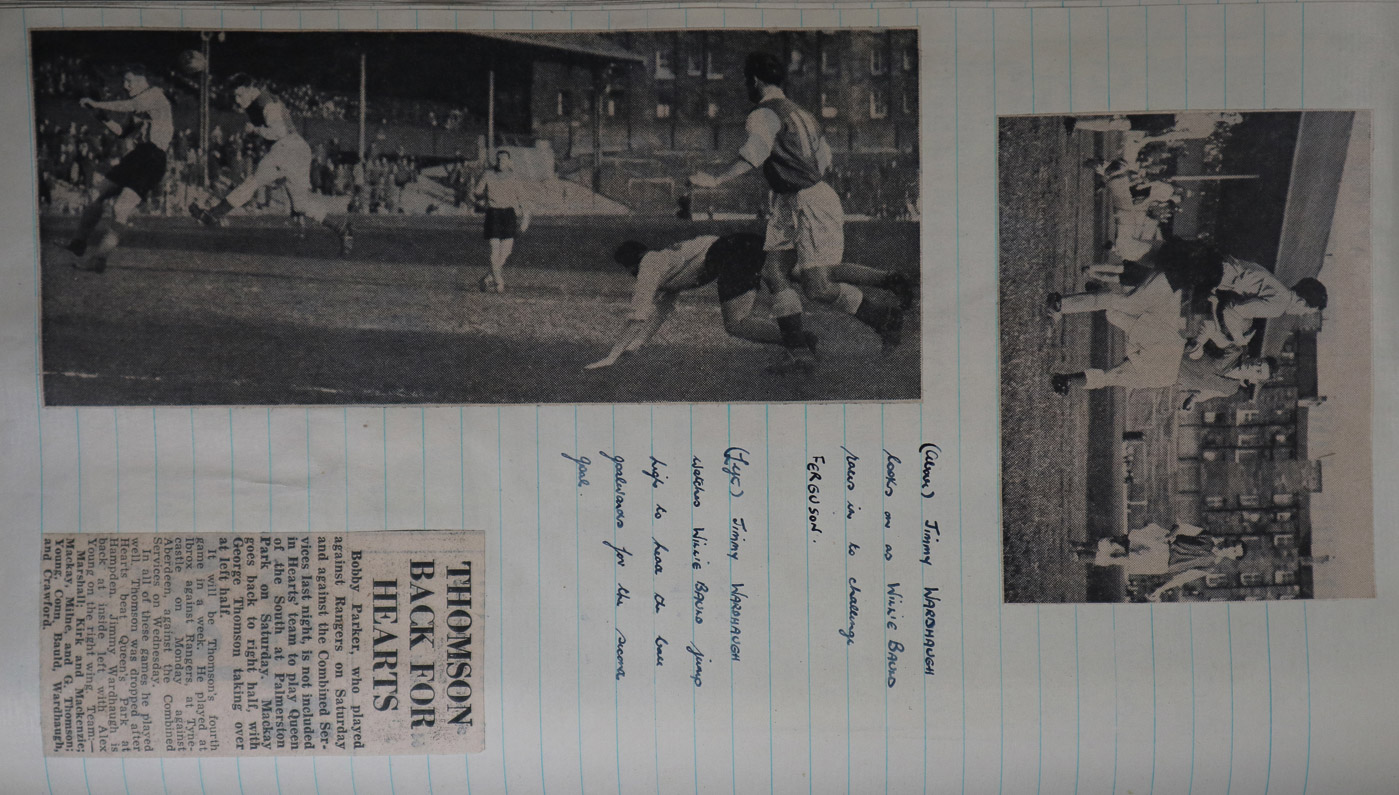 (above) JIMMY WARDHAUGH
looks on as WILLIE BAULD
races in to challenge
FERGUSON.
(left) JIMMY WARDHAUGH
watches WILLIE BAULD jump
high to head the ball
goalwards for the second
goal.
THOMSON
BACK FOR
HEARTS
Bobby Parker, who played
against Rangers on Saturday
and against the Combined Ser-
vices last night, is not included
in Hearts' team to play Queen
of the South at Palmerston
Park on Saturday. Mackay
goes back to right half, with
George Thomson taking over
at left half.
It will be Thomson's fourth
game in a week. He played at
Ibrox against Rangers, at Tyne-
castle on Monday against
Aberdeen, against the Combined
Services on Wednesday.
In all of these games he played
well. Thomson was dropped after
Hearts beat Queen's Park at
Hampden. Jimmy Wardhaugh is
back at inside left with Alex
Young on the right wing. Team:—
Marshall; Kirk and Mackenzie;
Mackay, Milne and G. Thomson;
Young, Conn, Bauld, Wardhaugh,
and Crawford.